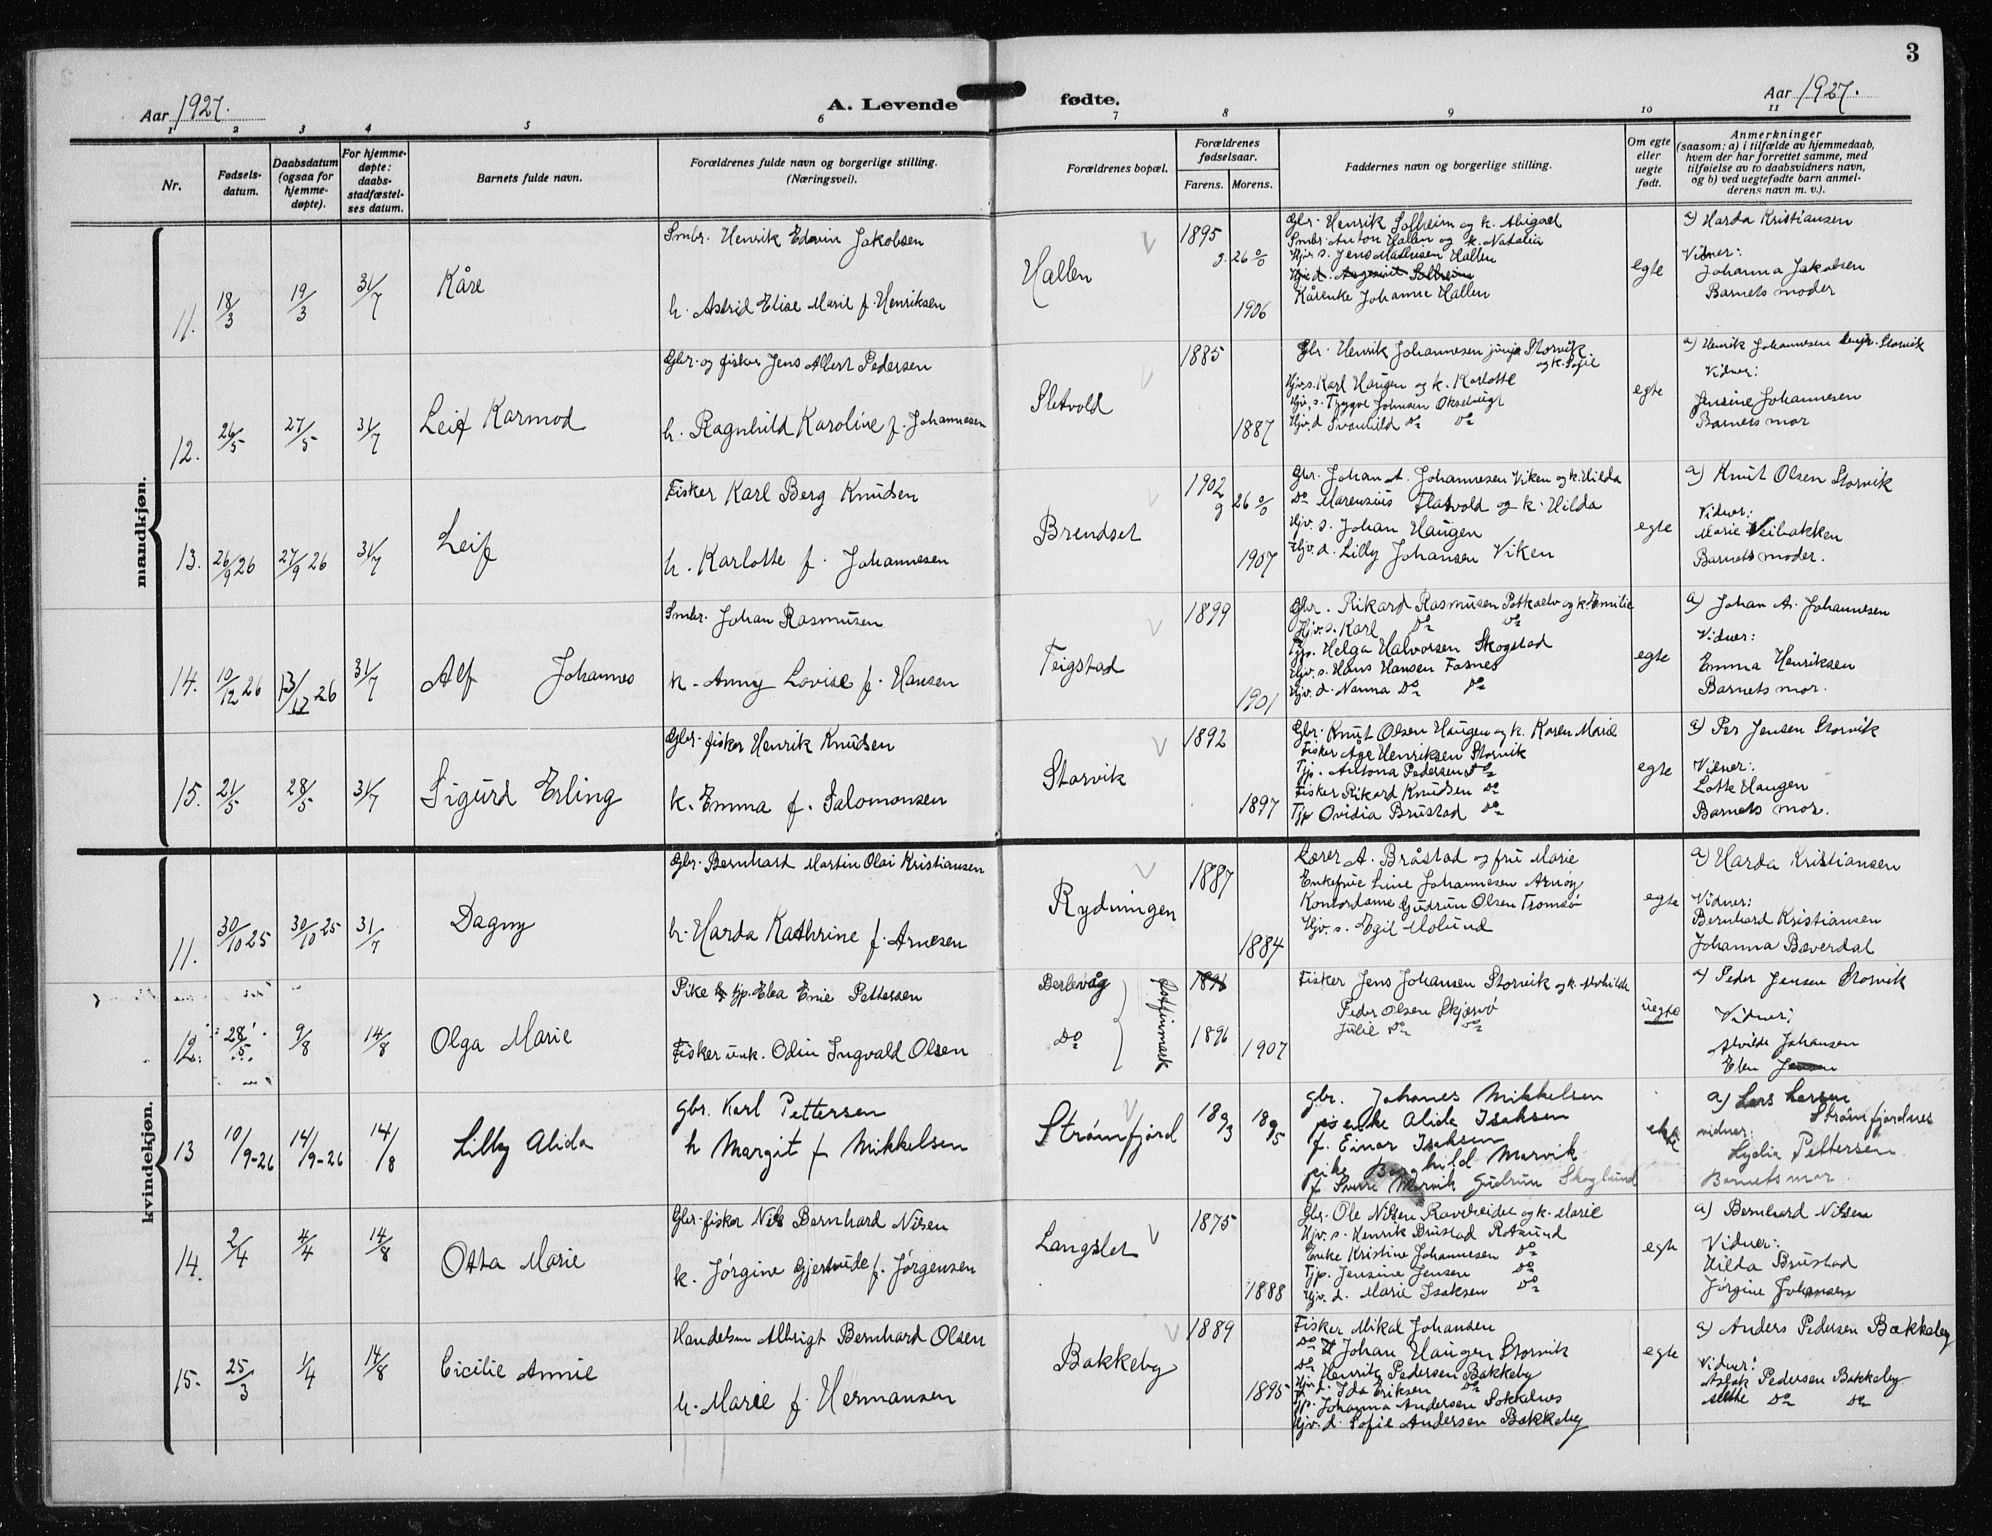 3
Aar 1927.
A. Levende fødte.
Aar 1927.
1 2 3 4 5 6 7 8 9 10 11
Nr.
Fødsels-
datum.
Daabsdatum
(ogsaa for
hjemme-
døpte).
For hjemme-
døpte:
daabs-
stadfæstel-
ses datum.
Barnets fulde navn.
Forældrenes fulde navn og borgerlige stilling.
(Næringsvei).
Forældrenes bopæl.
Forældrenes
fødselsaar.
Farens. Morens.
Faddernes navn og borgerlige stilling.
Om egte
eller
uegte
født.
Anmerkninger
(saasom: a) i tilfælde av hjemmedaab,
hvem der har forrettet samme, med
tilføielse av to daabsvidners navn,
og b) ved uegtefødte barn anmel-
derens navn m. v.).
mandkjøn.
11. 18/3 19/3 31/7 Kåre
Smbr. Henrik Edvin Jakobsen
h. Astrid Elise Marie f. Henriksen
Hallen
1895
g. 26 0/0
1906
Gbr. Henrik Solheim og k. Abigael
Smbr. Anton Hallen og k. Natalia
Hjv. s. Jens Mathisen Hallen
Kårenke Johanne Hallen
egte
a) Harda Kristiansen
Vidner:
Johanna Jakobsen
Barnets moder
12. 26/5 27/5 31/7 Leif Karmod
Gbr. og fisker Jens Albert Pedersen
h. Ragnhild Karoline f. Johannesen
Sletvold
1885
1887
Gbr. Henrik Johannesen junjr. Storvik
og k. Sofie
Hjv. s. Karl Haugen og k. Karlotte
Hjv. s. Trygve Johnsen
Hjv. d. Svanhild Do Do
egte
a) Henrik Johannesen Storvik
Vidner:
Jensine Johannesen
Barnets mor
13. 26/9 26 27/9 26 31/7 Leif
Fisker Karl Berg Knudsen
h. Karlotte f. Johannesen
Brendset
1902
g 26 0/0
1907
Gbr. Johan A. Johannesen Viken og k. Hilda
Do Marensius Flatvold og k. Hilda
Hjv. s. Johan Haugen
Hjv. d. Lilly Johansen Viken
egte
a) Knut Olsen Storvik
Vidner:
Marie Veibakken
Barnets moder.
14. 10/12 26 13/12 26 31/7 Alf Johannes
Smbr. Johan Rasmusen
k. Anny Lovise f. Hansen
Teigstad
1899
1901
Gbr. Rikard Rasmusen og k. Emilie
Hjv. s. Karl Do Do
Tjp. Helga Halvorsen Skogstad
Hjv. s. Hans Hansen Fosnes
Hjv. d. Nanna Do Do
egte
a) Johan A. Johannesen
Vidner:
Emma Henriksen
Barnets mor.
15. 21/5 28/5 31/7 Sigurd Erling
Gbr. fisker Henrik Knudsen
k. Emma f. Salomonsen
Storvik
1892
1897
Gbr. Knut Olsen Haugen og k. Karen Marie
Fisker Age Henriksen Storvik
Tjp. Antona Pedersen Do
Fisker Rikard Knudsen Do
Tjp Ovidia Brustad Do
egte
a) Per Jensen Storvik
Vidner:
Lotte Haugen
Barnets mor.
kvindekjøn.
11. 30/10 25 30/10 25 31/7 Dagny
Gbr. Bernhard Martin Olai Kristiansen
h. Harda Kathrine f. Arnesen
Rydningen
1887
1884
Lærer A. Bråstad og fru Marie
Enkefrue Line Johannesen Arnøy
Kontordame Gudrun Olsen Tromsø
Hjv. s. Egil Moland
egte
a) Harda Kristiansen
Vidner:
Bernhard Kristiansen
Johanna Bæverdal
12. 28/5 9/8 14/8 Olga Marie
Pike tjp. Elea Enie Pettersen
Fisker unk. Odin Ingvald Olsen
Berlevåg
Do
Østfinmark
1896
1896
1907
Fisker Jens Johansen Storvik og k. Alvhilde
Peder Olsen Skjervø
Julie Do Do
uegte
a) Peder Jensen Storvik
Vidner:
Alvilde Johansen
Elen Jensen
13 10/9-26 14/9-26 14/8 Lilly Alida
Gbr. Karl Pettersen
h Margit f Mikkelsen
Strømfjord
1893
1895
Gbr. Johanes Mikkelsen
enke Alida Isaksen
f. Einar Isaksen
pike Borghild Marvik
f Sverre Marvik Gudrun Skoglund
ekte
a) Lars Larsen
Strømfjordnes
vidner:
Lydia Pettersen
Barnets mor
14. 2/4 4/4 14/8 Otta Marie
Gbr. fisker Nils Bernhard Nilsen
k. Jørgine Gjertrude f. Jørgensen
Langslet
1875
1888
Gbr. Ole Nilsen Raveleidet og k. Marie
Hjv. s. Henrik Brustad Rotsund
Enke Kristine Johannesen Do
Tjp. Jensine Jensen Do
Hjv. d. Marie Isaksen Do
egte
a) Bernhard Nilsen
Vidner:
Hilda Brustad
Jørgine Johansen
15. 25/3 1/4 14/8 Cicilie Annie
Handelsm Albrigt Bernhard Olsen
h. Marie f. Hermansen
Bakkeby
1889
1895
Fisker Mikal Johansen
Do Johan Haugen Storvik
Do Henrik Pedersen Bakkeby
Hjv. d. Ida Eriksen Do
Tjp. Johanna Andersen Sokkelnes
Hjv. d. Sofie Andersen Bakkeby
egte
a) Anders Pedersen Bakkeby
Vidner:
Aslak Pedersen Bakkeby
Do Do